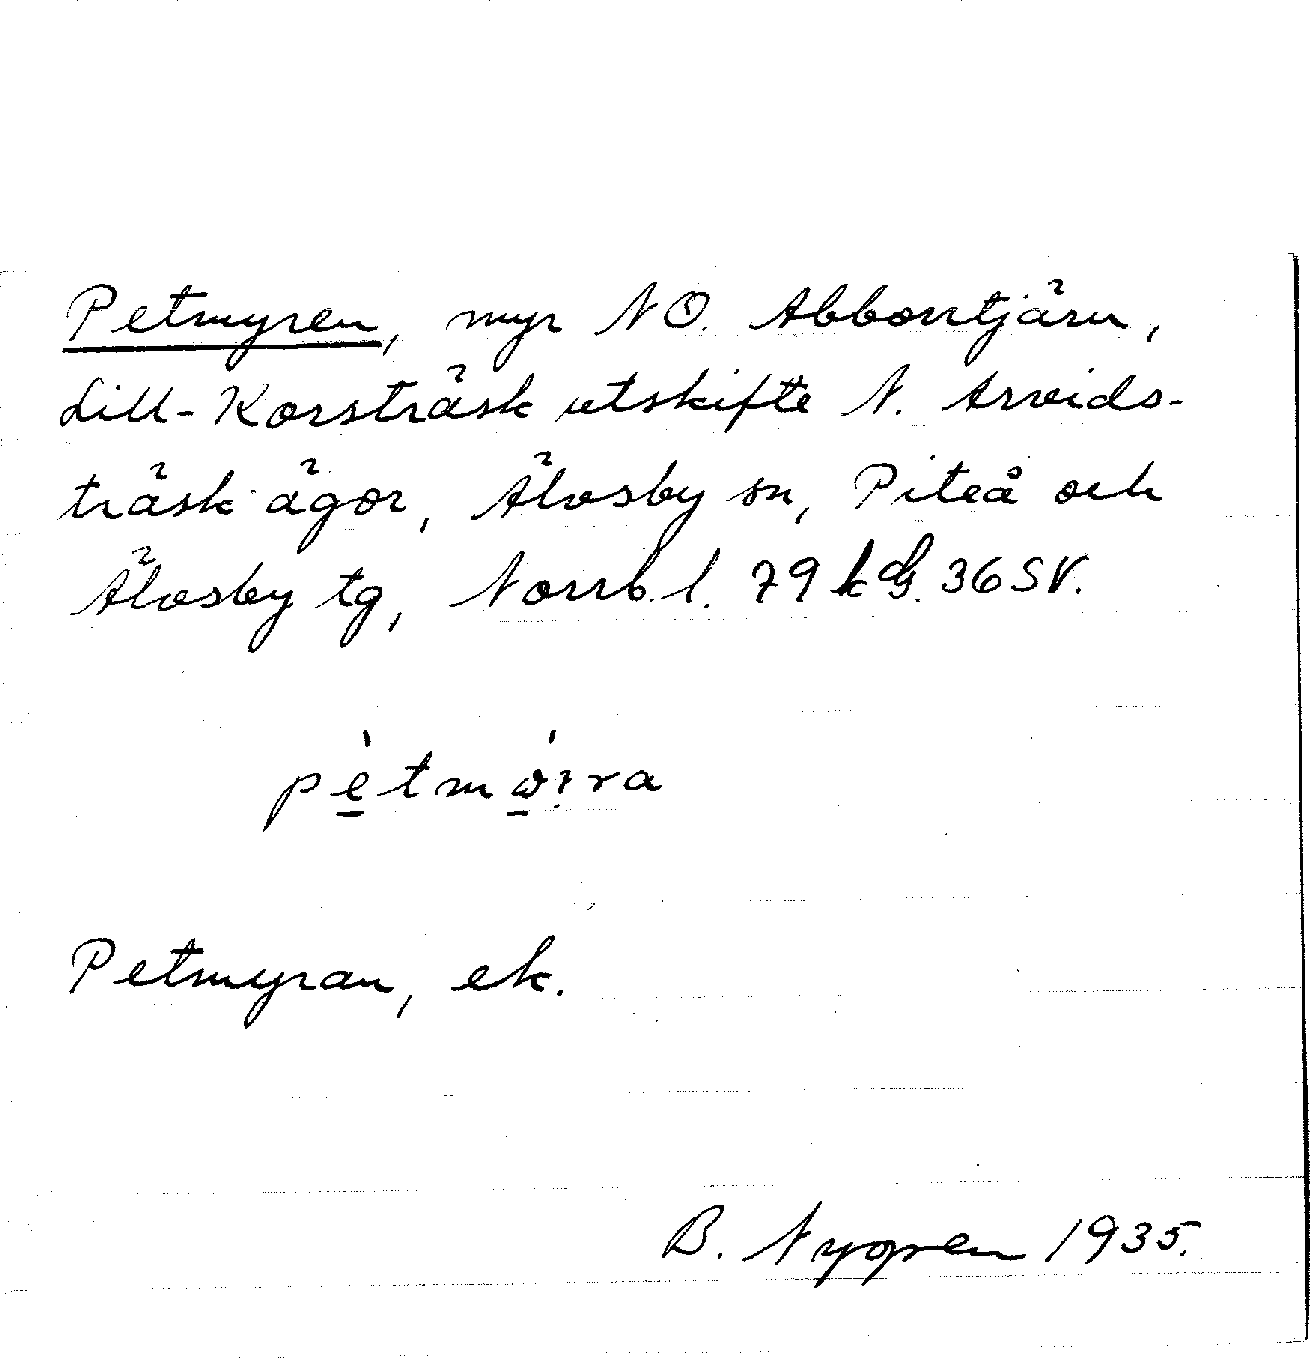 Petmyren, myr NO. Abborrtjärn,
Lill-Korsträsk utskifte N. Arvids-
träsk ägor, Älvsby sn, Piteå och
Älvsby tg, Norrb. l. 79 36SV.
Petmyran, ek.
B. Nygren 1935.